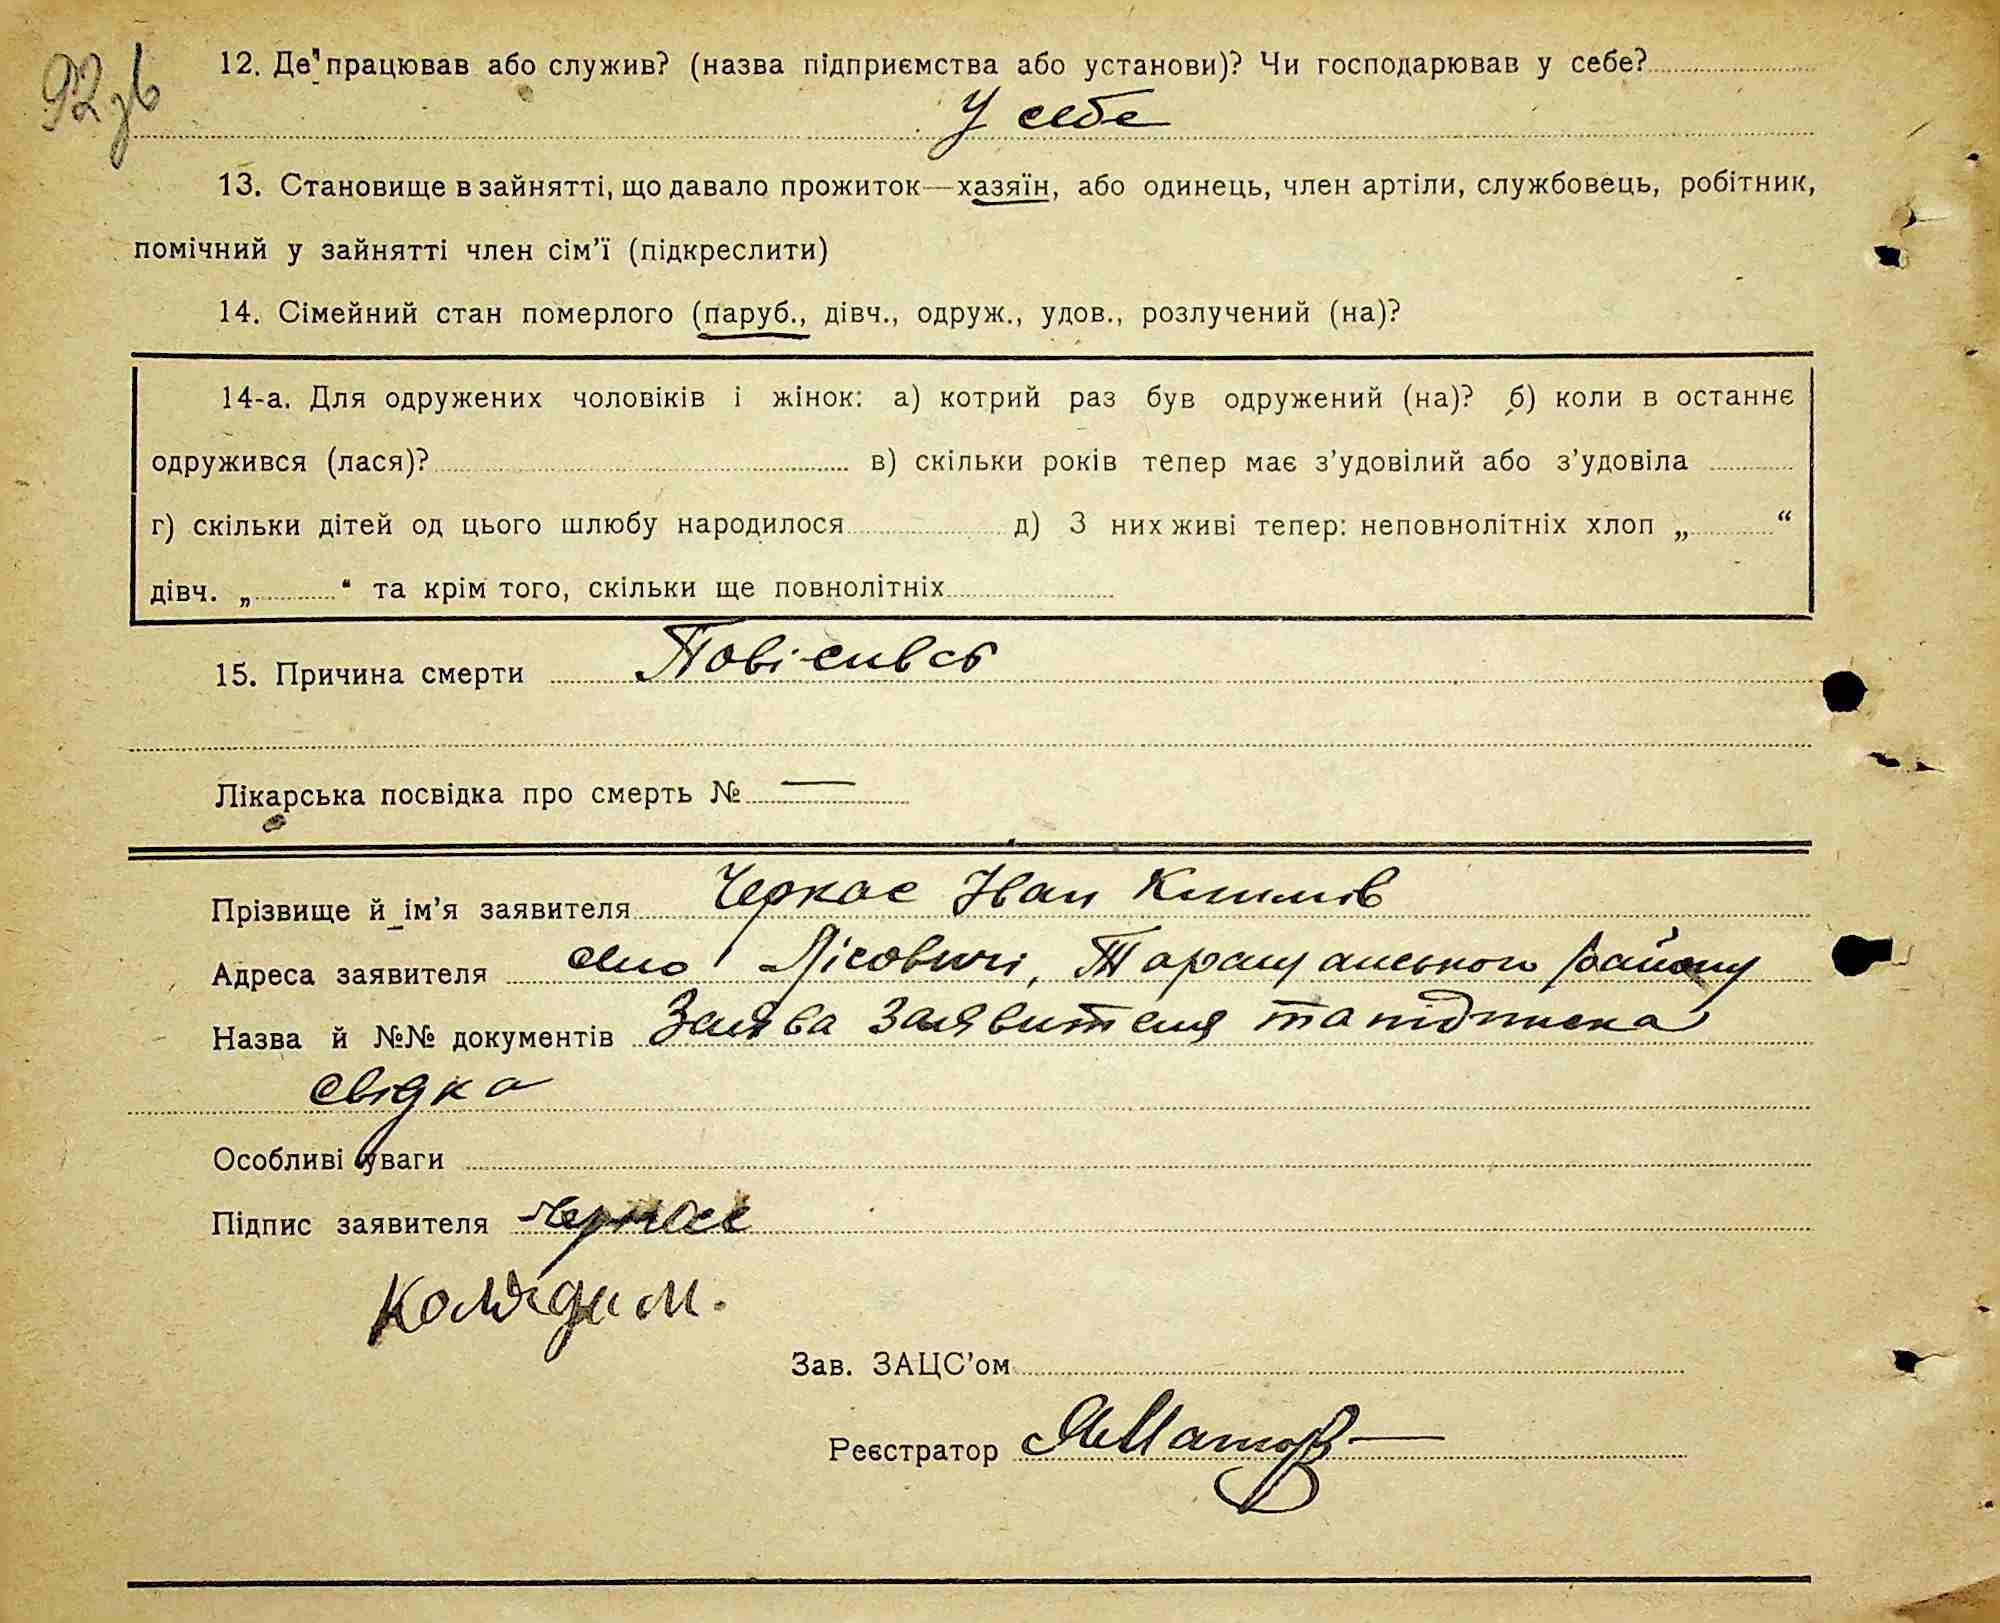 92 зв
12. Де працював або служив? (назва підприємства або установи)? Чи господарював у себе?
У себе
13. Становище в зайнятті, що давало прожиток—хазяїн, або одинець, член артіли, службовець, робітник,
помічний у зайнятті член сім'ї (підкреслити)
14. Сімейний стан померлого (паруб., дівч., одруж., удов., розлучений (на)?
14-а. Для одружених чоловіків і жінок: а) котрий раз був одружений (на)? б) коли в останнє
одружився (лася)? в) скільки років тепер має з'удовілий або з'удовіла
г) скільки дітей од цього шлюбу народилося д) З них живі тепер: неповнолітніх хлоп „ “
дівч. „ “ та крім того, скільки ще повнолітніх
15. Причина смерти Повісивсь
Лікарська посвідка про смерть № —
Прізвище й ім'я заявителя Черкас Іван Климів
Адреса заявителя село Лісовичі, Таращанського району
Назва й №№ документів Заява заявителя та підписка
свідка
Особливі уваги
Підпис заявителя Черкас
Зав. ЗАЦС'ом
Реєстратор